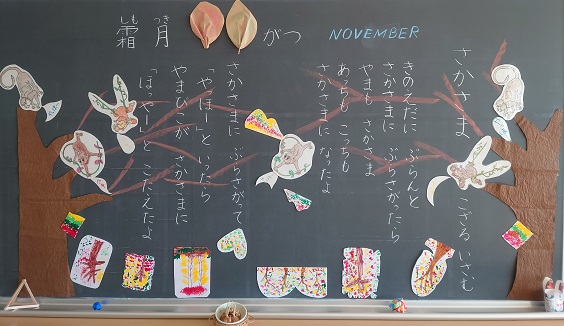 しも つき
霜 月 がつ NOVEMBER
さかさま こざる いさむ
きのえだに ぶらんと
さかさまに ぶらさがったら
やまも さかさま
あっちも こっちも
さかさまに なったよ
さかさまに ぶらさがって
「やっほー」と いったら
やまびこが さかさまに
「ほっやー」と こたえたよ